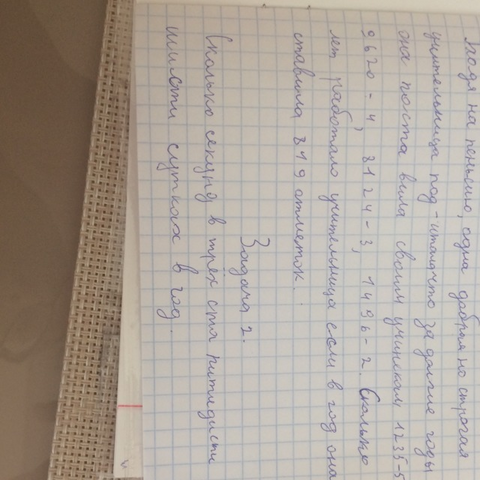 Уходя на пенсию, одна добрая но строгая
учительница под-итожила за долгие годы
она поста вила своим ученикам 1235-5
9620-4, 3124-3, 1496-2. Сколько
лет работало учительница если в год она
ставила 819 отметок.
Задача 2.
Сколько секунд в трёх ста пятидисти
шисти сутках в год.